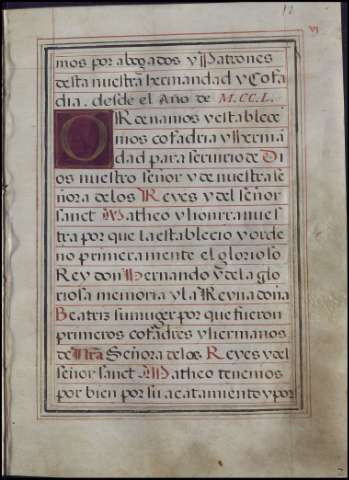 12
VI
mos por abogados y Patrones
desta nuestra hermandad y Cofa
dia. desde el Año de M.CC.L.
ORdenamos y estable
mos cofadria y Hermã
dad para servicio de Di
os nuestro señor y de nuestra se
ñora de los Reyes y del señor
sanct Matheo y honrra nues
tra por que la establecio y orde
no primeramente el glorioso
Rey don Hernando y de la glo
riosa memoria y la Reyna doña
Beatriz su muger por que fueron
primeros cofadres y hermanos
de Nr̃a Señora de los Reyes y del
señor sanct Matheo tenemos
por bien por su acatamiento y por